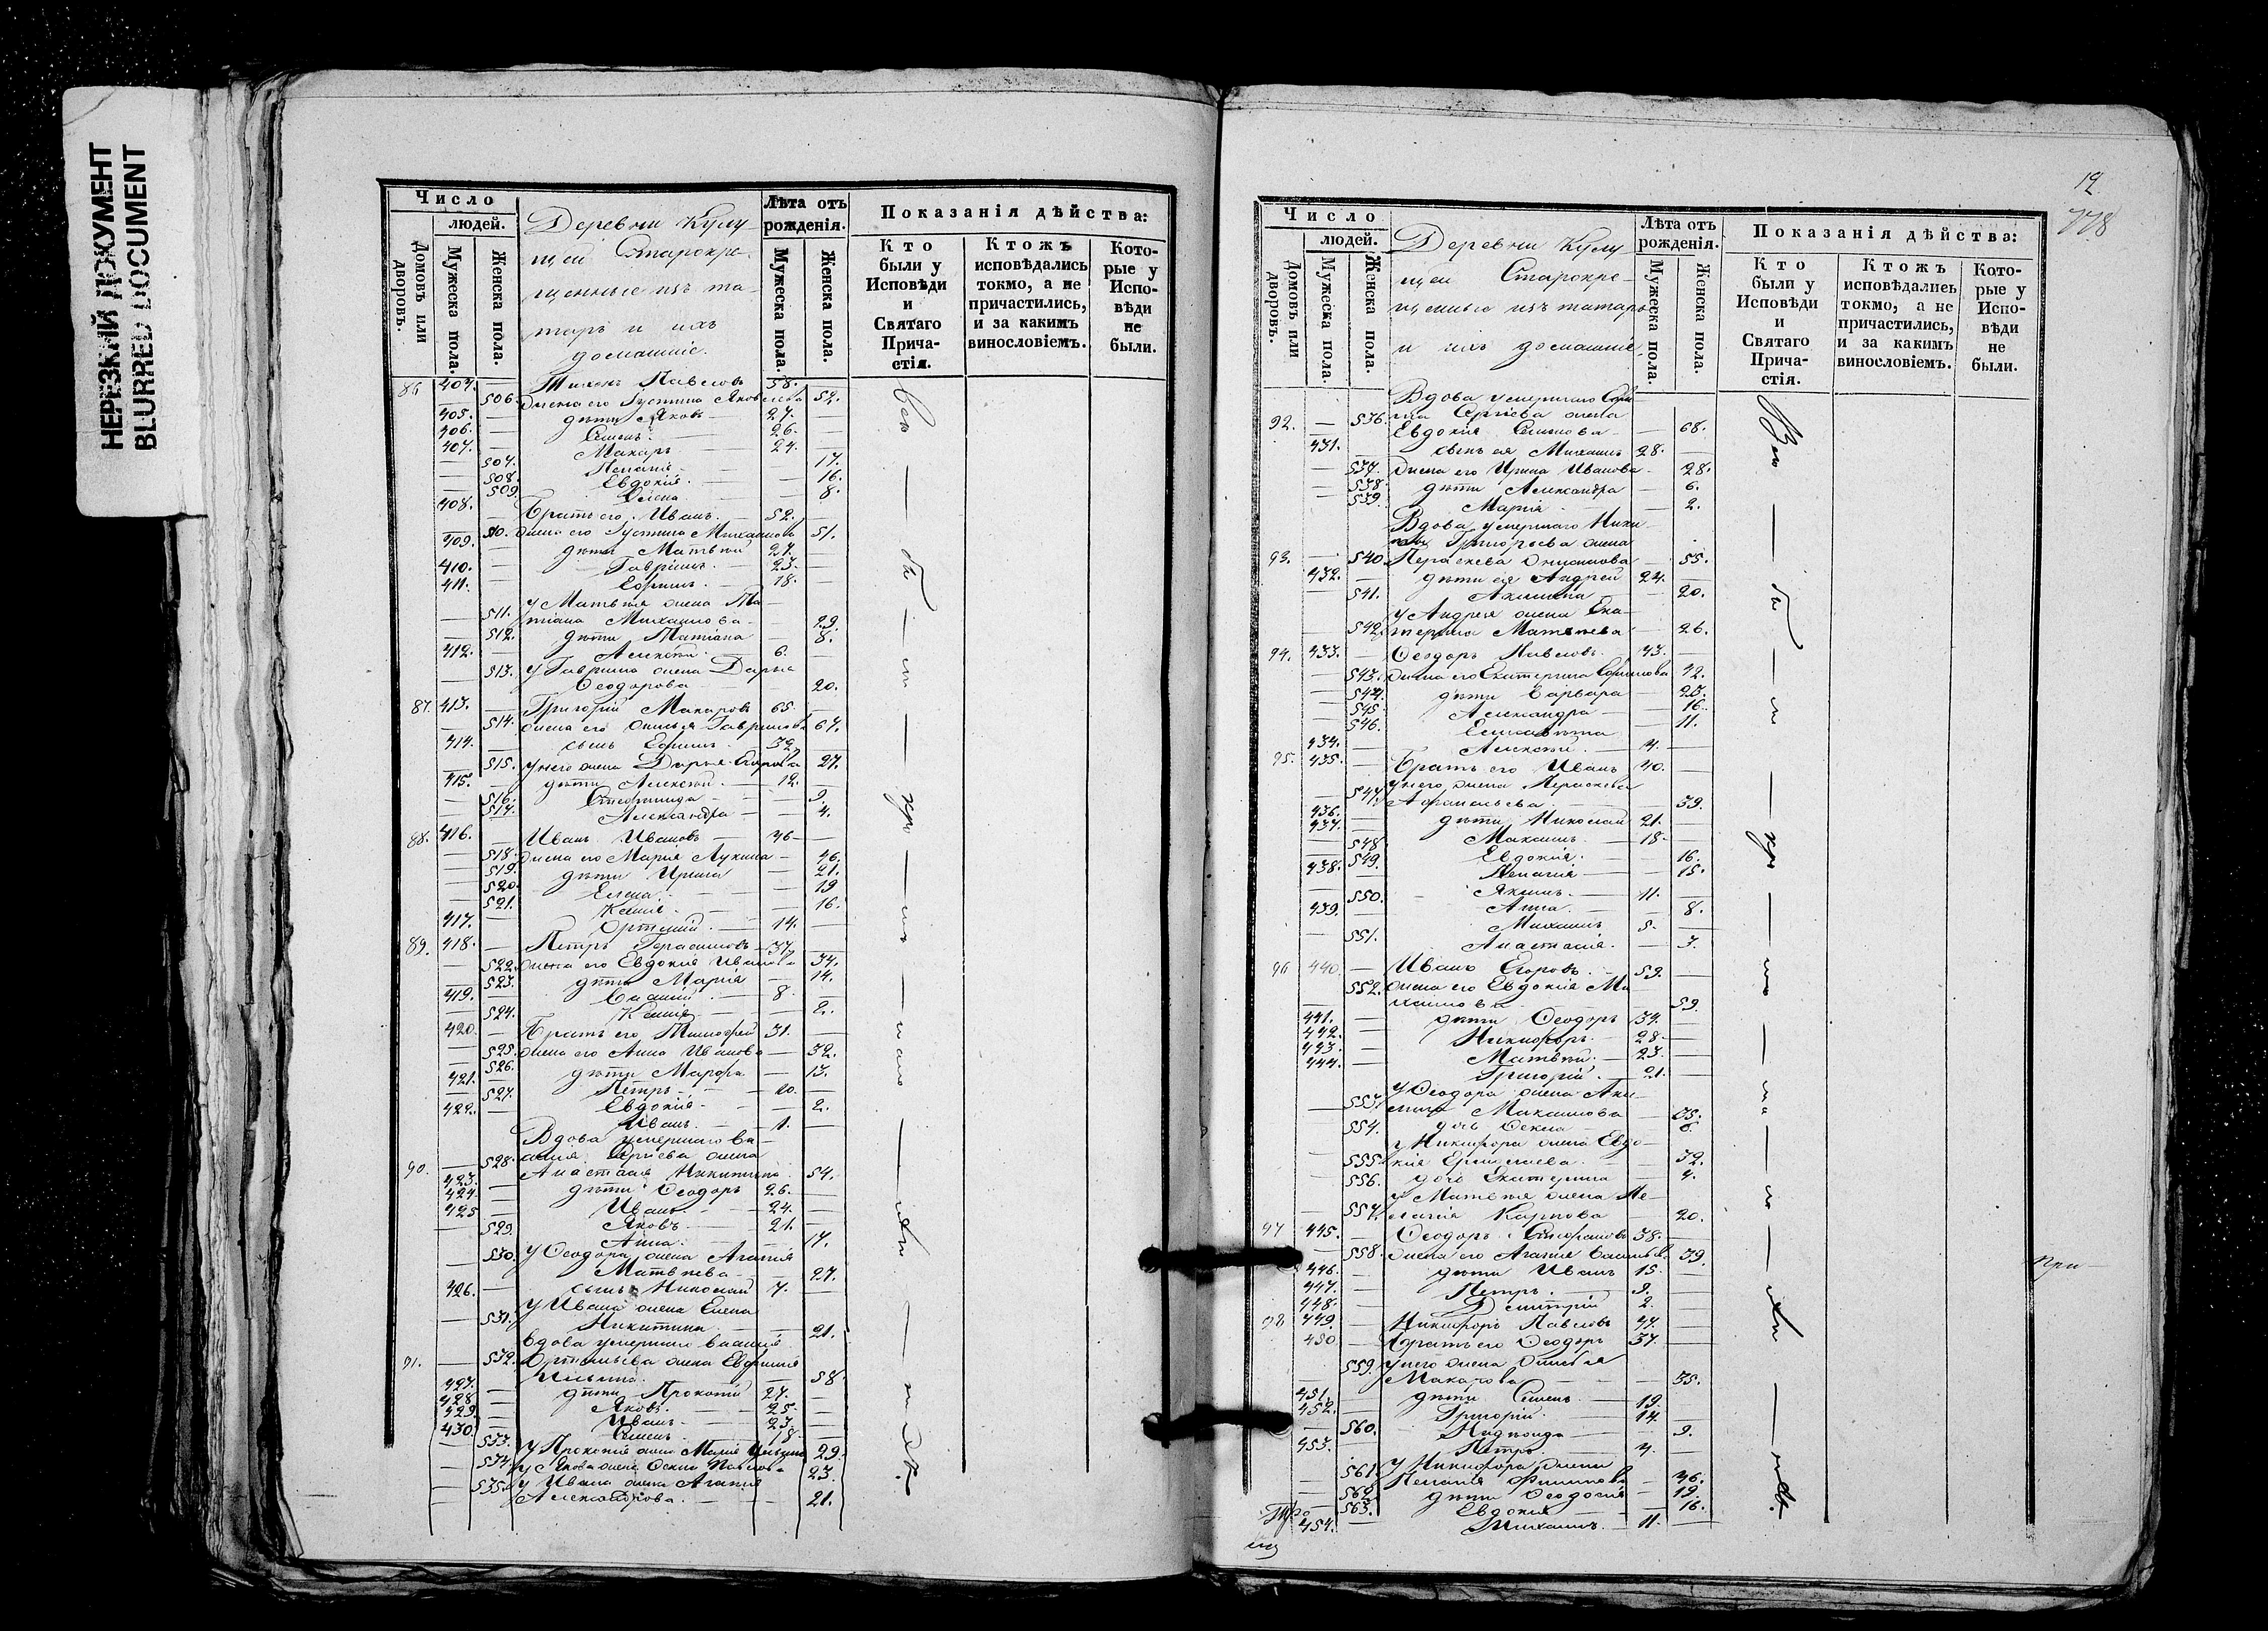 НЕРЕЗКИЙ ДОКУМЕНТ
BLURRED DOCUMENT
Число
людей.
Домовъ или дворовъ.
Мужеска пола.
Женска пола.
Деревни Кулу-
щей Старокре-
щенные изъ та-
таръ и ихъ
домашніе.
Лѣта отъ рожденія.
Мужеска пола.
Женска пола.
Показанія дѣйства:
Кто были у Исповѣди и Святаго Прича-стія.
Ктожъ исповѣдались токмо, а не причастились, и за какимъ винословіемъ.
Кото-рые у Испо-вѣди не были.
86 404. Тихонъ Павловъ 58.
506. жена его Густина Яковлева 52.
405. дѣти Яковъ 27.
406. Семенъ 26.
407. Макаръ 24.
507. 17.
508. Евдокія 16.
509. Елена 8.
408. Братъ его Иванъ 52.
510. жена его Густина Михайлова 51.
409. дѣти Матвѣй 27.
410. Гавріилъ 23.
411. Ефимъ 18.
у Матвѣя жена Та-
511. тіана Михаилова 29.
512. дѣти Татіана 8.
412. Алексѣй 6.
513. у Гавріила жена Дарья
Ѳеодорова 20.
87. 413. Григорій Макаровъ 65.
514. жена его Гаврилова 67.
414. сынъ Ефимъ 32.
515. у него жена Дарья Егорова 27.
415. дѣти Алексѣй 12.
516. Степанида 9.
517. Александра 4.
88. 416. Иванъ Ивановъ 46
518. жена его Марія Лукина 46.
519. дѣти Ирина 21.
520. Елена 19
521. Ксенія 16.
417. Ортемій 14.
89. 418. Петръ Герасимовъ 37.
522. жена его Евдокія Иванова 34.
523. дѣти Марія 14.
419. Василій 8.
524. Ксенія 2.
420. Братъ его Тимофей 31.
525. жена его Анна Иванова 32.
526. дѣти Марфа 13.
421. Петръ 10.
527. Евдокія 2.
422. Иванъ 1.
Вдова умершаго Ва-
силія Сергіева жена
90. 528. Анастасія Никитина 54.
423. дѣти Ѳеодоръ 26.
424. Иванъ 24.
425 Яковъ 21.
529. Анна 17.
530. у Ѳеодора жена Агапія
Матвѣева 27.
426. сынъ Николай 7.
у Ивана жена Елена
531. Никитина 21.
Вдова умершаго Василія
91. 532. Ортемьева жена Евфимія
Ильина 58.
427. дѣти Прокопій 27.
428. Яковъ 25.
429. Иванъ 23.
430. Семенъ 18.
533. у Прокопія жена Марія Ильина 29.
534. у Якова жена Ѳекла Павлова 23.
535. у Ивана жена Агапія
Александрова 21.
Всѣ
12
778
Число
людей.
Домовъ или дворовъ.
Мужеска пола.
Женска пола.
Деревни Кулу-
щей Старокре-
щеные изъ татаръ
и ихъ домашніе.
Лѣта отъ рожденія.
Мужеска пола.
Женска пола.
Показанія дѣйства:
Кто были у Исповѣди и Святаго Прича-стія.
Ктожъ исповѣдались токмо, а не причастились, и за какимъ винословіемъ.
Кото-рые у Испо-вѣди не были.
Вдова умершаго
Сергіева жена
92. 536. Евдокія Семенова 68.
431. сынъ ея Михаилъ 28.
537. жена его Ирина Иванова 28.
538. дѣти Александра 6.
539. Марія 2.
Вдова умершаго Ники-
ты Григорьева жена
93. 540. Параскева 55.
432. дѣти ея Андрей 24.
541. Акилина 20.
у Андрея жена Ека-
542. терина Матвѣева 26.
94. 433. Ѳеодоръ Павловъ 43.
543. жена его Екатерина Ефимова 42.
544. дѣти Варвара 23.
545. Александра 16.
546. Елисавета 11.
434. Алексѣй 4.
95. 435. Братъ его Иванъ 40.
у него жена Параскева
547. Афанасьева 39.
436. дѣти Николай 21.
437. Максимъ 18.
548. Евдокія 16.
549. Пелагія 15.
438. Якимъ 11.
550. Анна 8.
439. Михаилъ 5.
551. Анастасія 3.
96 440. Иванъ Егоровъ 59.
552. жена его Евдокія Ми-
хаилова 59.
441. дѣти Ѳеодоръ 34.
442. Никифоръ 28.
443. Матвѣй 23.
444. Григорій 21.
у Ѳеодора жена Аки-
553. лина Максимова 35.
554. дочь Ѳекла 8.
у Никифора жена Евдо-
555. кія Ермолаева 32.
556. дочь Екатерина 4.
у Матвѣя жена Пе-
557. лагія Карпова 20.
97 445. Ѳеодоръ Стефановъ 38.
558. жена его Агапія Васильева 39.
446. дѣти Иванъ 15.
447. Петръ 9.
448. Димитрій 2.
98 449. Никифоръ Павловъ 47.
450. Братъ его Ѳеодоръ 37.
559. у него жена
Макарова 35.
451. дѣти Семенъ 19.
452. Григорій 14.
560. 9.
453. Петръ 4.
у Никифора жена
561. Пелагія Филиппова 46.
562. дѣти Ѳеодосія 19.
563. Евдокія 16.
454. Михаилъ 11.
Всѣ
При